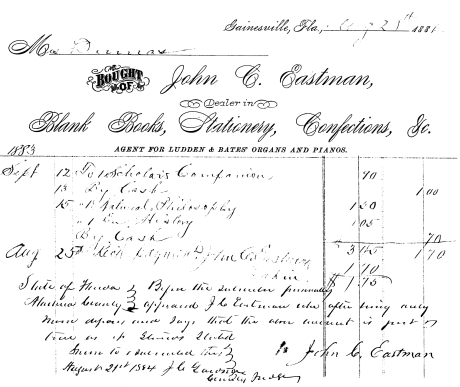 Gainesville, Fla., Aug 25th 1884
Mrs Dumas
BOUGHT OF John C. Eastman,
Dealer in
Blank Books, Stationery, Confections, &c.
AGENT FOR LUDDEN & BATES' ORGANS AND PIANOS.
1883
Sept 12 To 1 Scholars Companion 70
13 By Cash 1 00
15 " 1 Natural Philosophy 1 50
" 1 History 1 05
By Cash 70
Aug 25th John C. Eastman 3 45 1 70
1 70
$ 1 75
State of Florida } Before the subscriber personally
Alachua County } appeared J C Eastman who after being duly
sworn deposes and says that the above account is just &
true as it stands stated
Sworn to & subscribed this } John C. Eastman
August 21st 1884 J C Gardner
County Judge